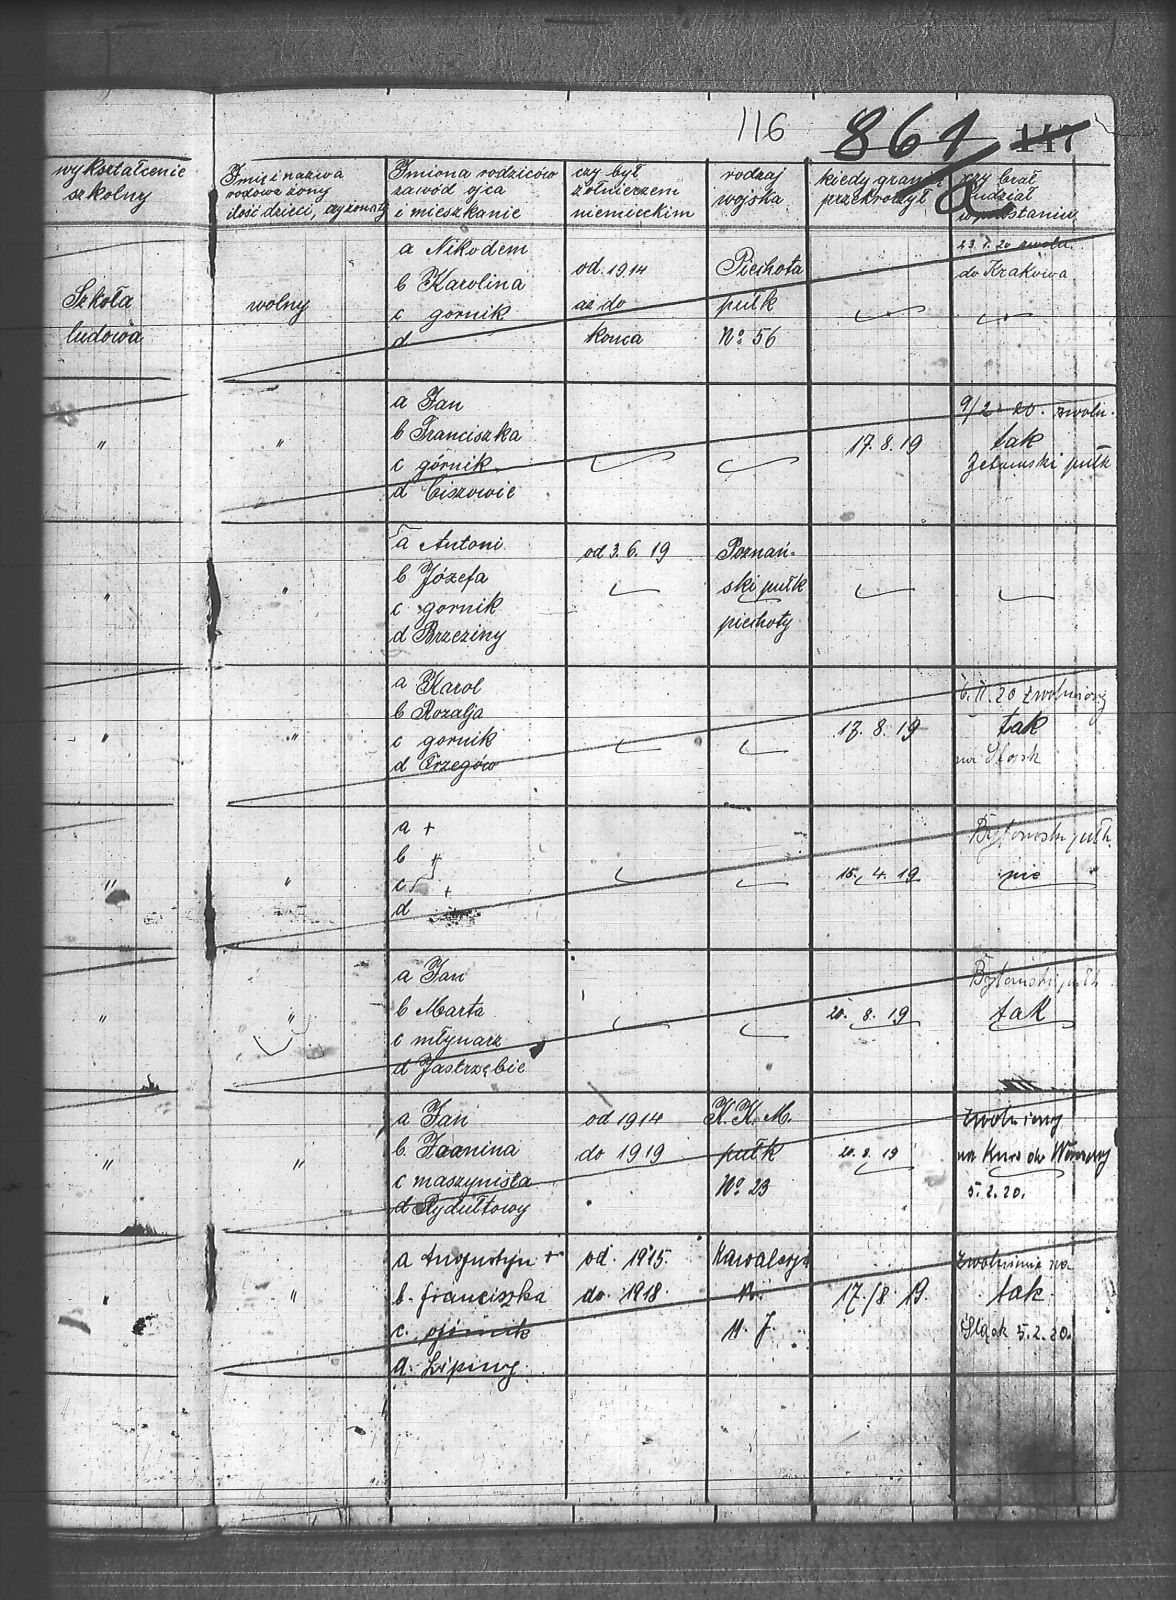 116 861 117
wykształcenie
szkolny
Imię i nazwa
rodowe żony
ilość dzieci, czy żonaty
Imiona rodziców
zawód ojca
i mieszkanie
czy był
żołnierzem
niemieckim
rodzaj
wojska
kiedy granicę
przekroczył
czy brał
udział
w powstaniu
Szkoła
ludowa
wolny
a Nikodem
b Karolina
c gornik
d
od 1914
aż do
konca
Piechota
pułk
No 56
23.1.20 zwoln.
do Krakowa
" "
a Jan
b Franciszka
c górnik
d Ciszowie
17.8.19
9/2 - 20. zwoln.
tak
pułk
" "
a Antoni
b Józefa
c gornik
d Brzeziny
od 3.6.19
Poznań-
ski pułk
piechoty
" "
a Karol
b Rozalja
c gornik
d
17.8.19
6.II.20 zwolniony
tak
na Sląsk
" "
a +
b +
c +
d
15.4.19
Bytomski pułk.
nie
" "
a Jan
b Marta
c młynarz
d Jastrzębie
20.8.19
Bytomski pułk
tak
" "
a Jan
b Joanina
c maszynista
d Rydułtowy
od 1914
do 1919
K. K. M.
pułk
No 23
20.8.19
zwolniony
na Kurs do Warszawy
5.2.20.
" "
a Augustyn +
b. franciszka
c. górnik
d. Lipiny.
od. 1915.
do. 1918.
Kawalerja
N.
11. J.
17./8 19.
zwolnienie na
tak.
Sląsk 5.2.20.